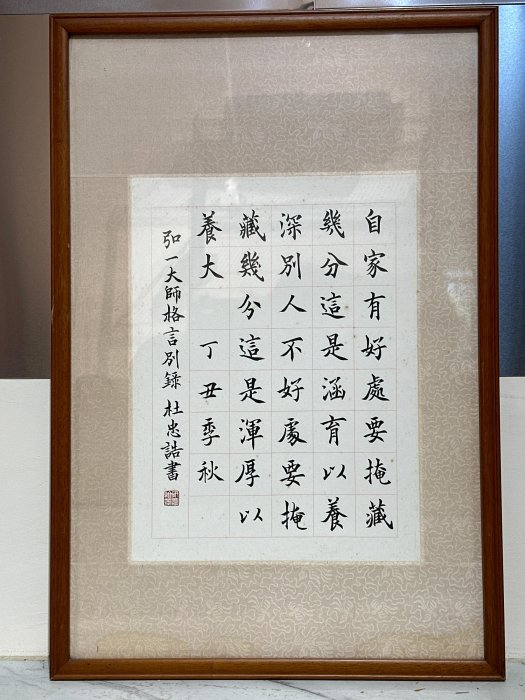 自家有好處要掩藏
幾分這是涵育以養
深別人不好處要掩
藏幾分這是渾厚以
養大 丁丑季秋
弘一大師格言別錄 杜忠誥書